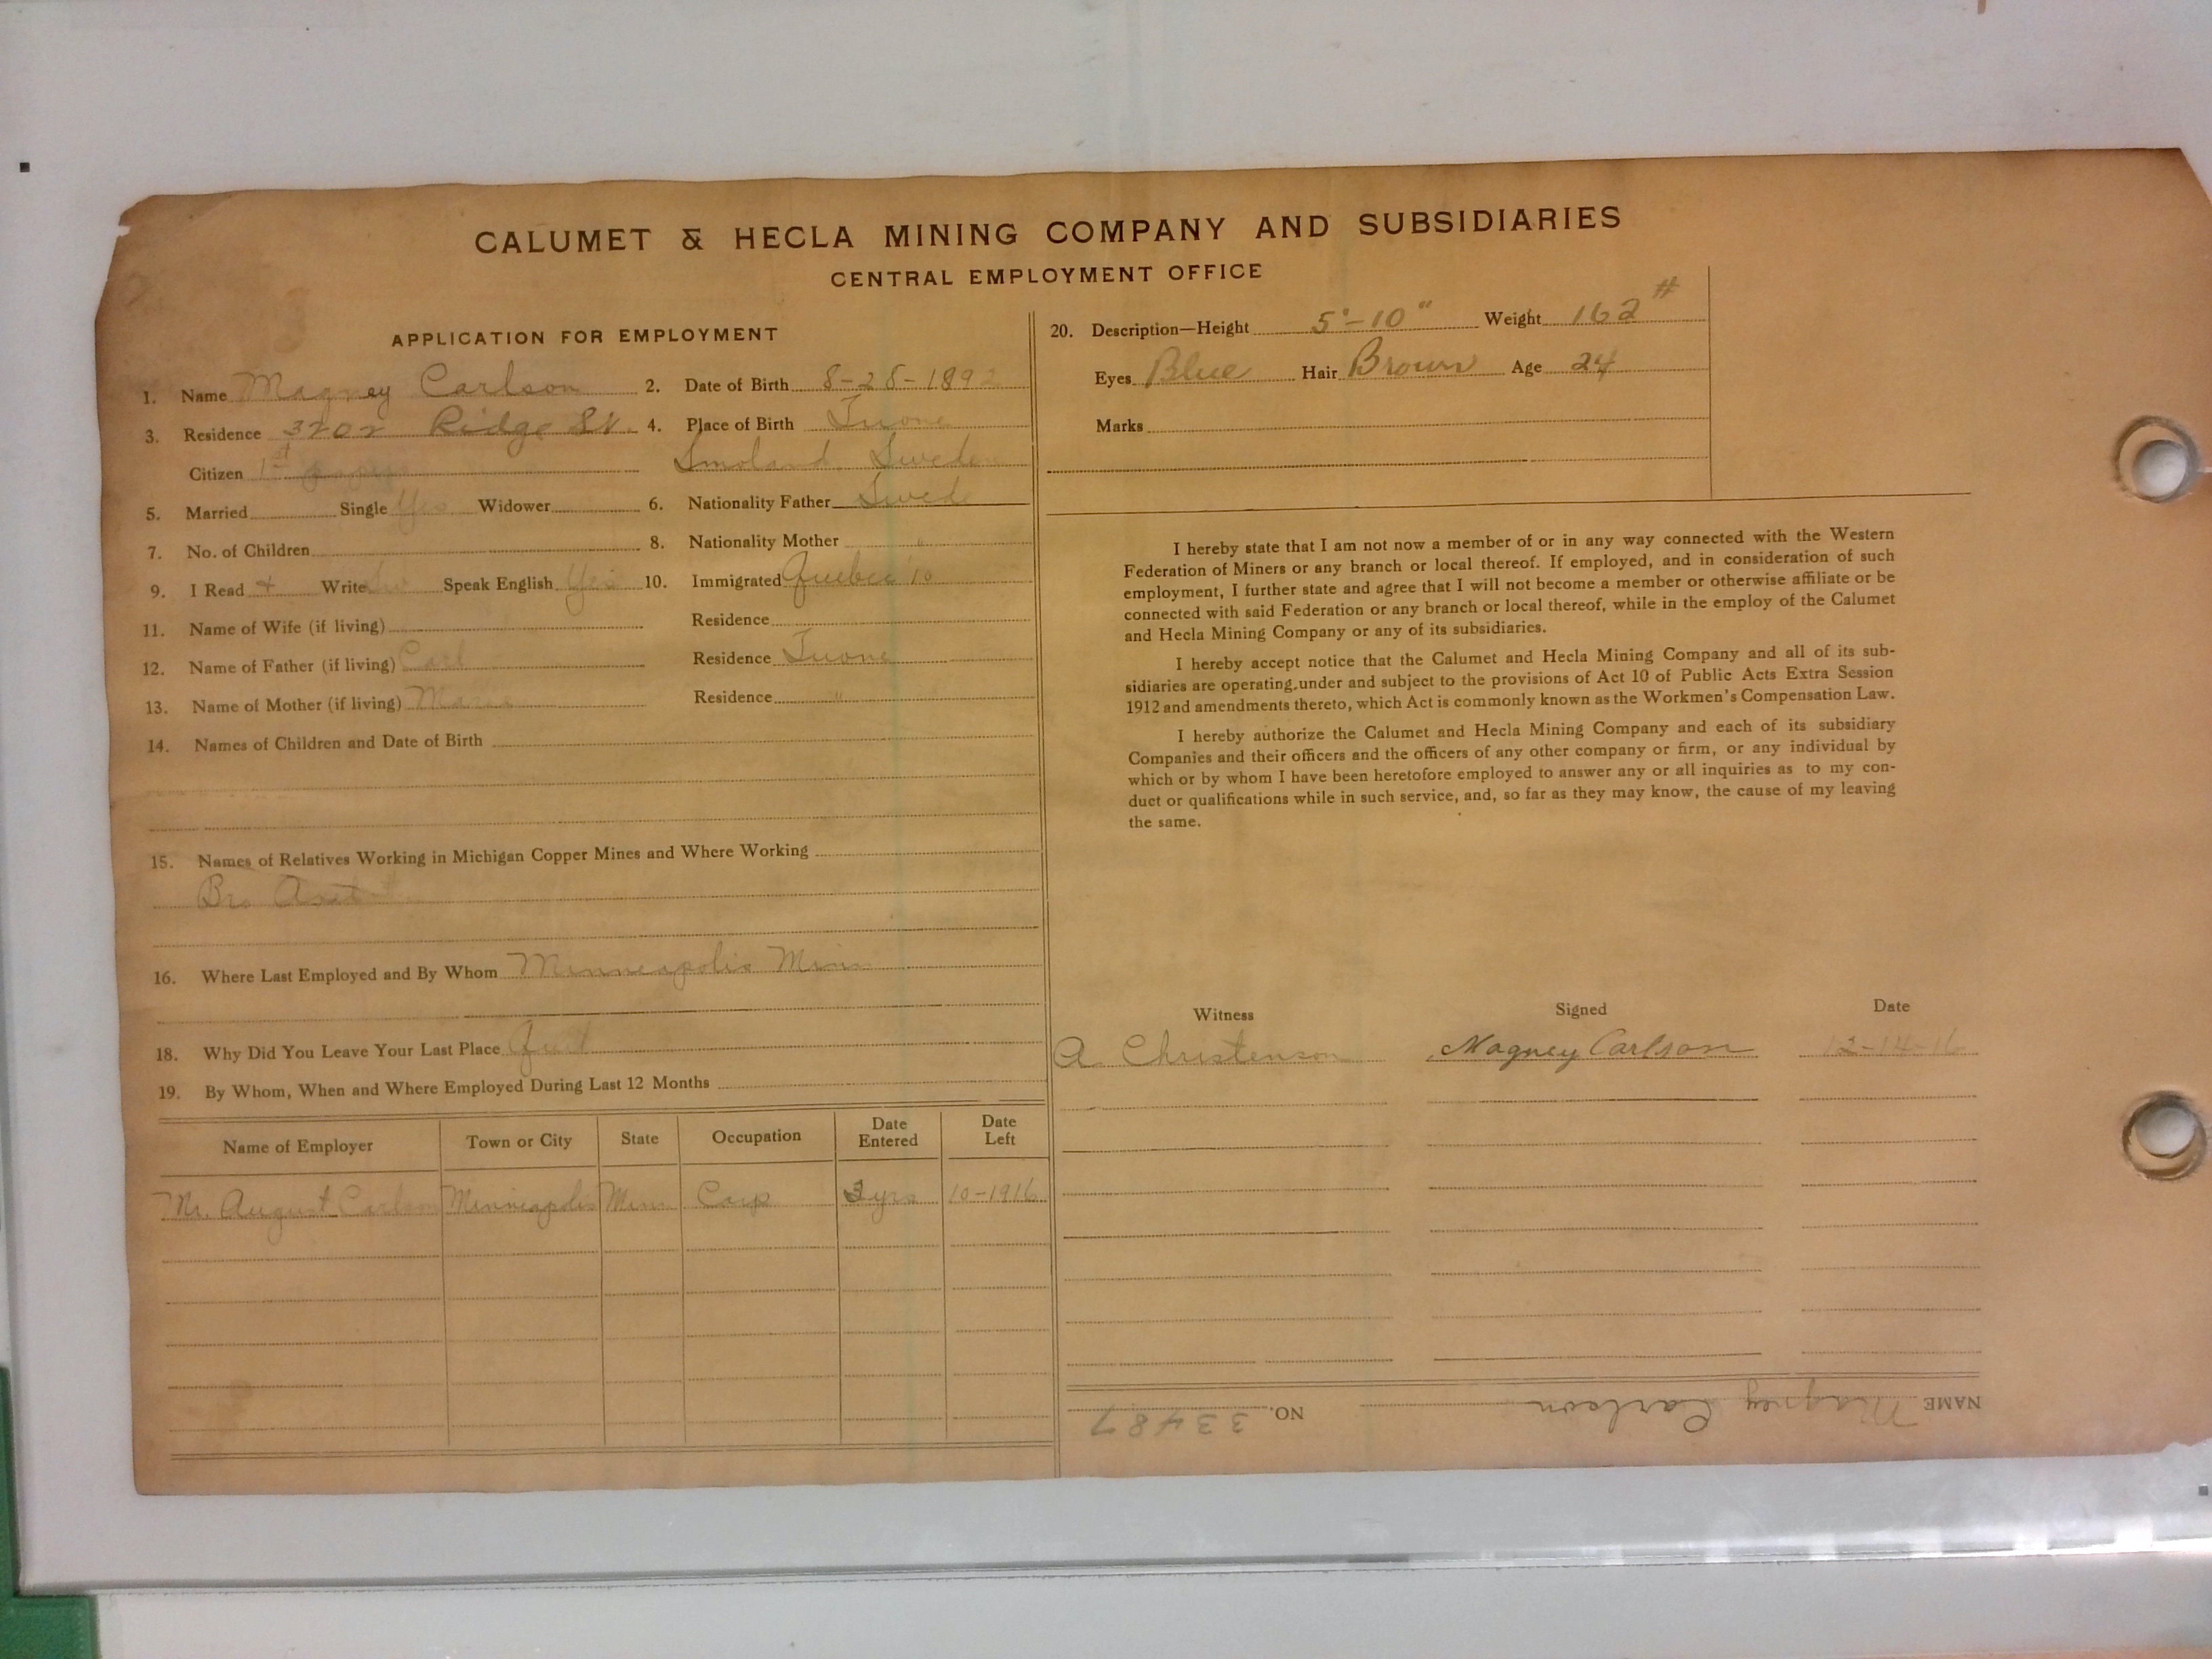 CALUMET & HECLA MINING COMPANY AND SUBSIDIARIES
CENTRAL EMPLOYMENT OFFICE
APPLICATION FOR EMPLOYMENT
1. Name Magney Carlson 2. Date of Birth 8-28-1892
3. Residence 3202 Ridge St. 4. Place of Birth
Citizen 1st Smoland, Sweden
5. Married Single Yes Widower 6. Nationality Father Swed
7. No. of Children 8. Nationality Mother "
9. I Read + Write Speak English Yes 10. Immigrated Quebec '10
11. Name of Wife (if living) Residence
12. Name of Father (if living) Carl Residence
13. Name of Mother (if living) Residence "
14. Names of Children and Date of Birth
15. Names of Relatives Working in Michigan Copper Mines and Where Working
Bro
16. Where Last Employed and By Whom Minneapolis Minn
18. Why Did You Leave Your Last Place Quit
19. By Whom, When and Where Employed During Last 12 Months
Name of Employer Town or City State Occupation Date Entered Date Left
Mr. August Carlson Minneapolis Minn Carp 3 yrs 10-1916
20. Description—Height 5'-10" Weight 162 #
Eyes Blue Hair Brown Age 24
Marks
I hereby state that I am not now a member of or in any way connected with the Western
Federation of Miners or any branch or local thereof. If employed, and in consideration of such
employment, I further state and agree that I will not become a member or otherwise affiliate or be
connected with said Federation or any branch or local thereof, while in the employ of the Calumet
and Hecla Mining Company or any of its subsidiaries.
I hereby accept notice that the Calumet and Hecla Mining Company and all of its sub-
sidiaries are operating under and subject to the provisions of Act 10 of Public Acts Extra Session
1912 and amendments thereto, which Act is commonly known as the Workmen's Compensation Law.
I hereby authorize the Calumet and Hecla Mining Company and each of its subsidiary
Companies and their officers and the officers of any other company or firm, or any individual by
which or by whom I have been heretofore employed to answer any or all inquiries as to my con-
duct or qualifications while in such service, and, so far as they may know, the cause of my leaving
the same.
Witness Signed Date
A Christenson Magney Carlson 12-14-16
NAME Magney Carlson NO. 33487